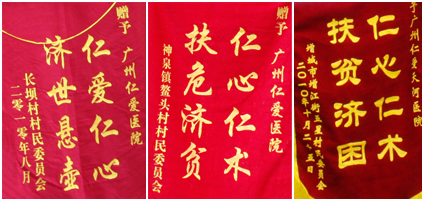 赠予
广州仁爱医院
仁爱仁心
济世悬壶
长坝村村民委员会
二零一零年八月
赠予
广州仁爱医院
仁心仁术
扶危济贫
神泉镇鳌头村村民委员会
予广州仁爱天河医院
仁心仁术
扶贫济困
增城市增江街五星村
委员会
二〇一〇年十月二
五日